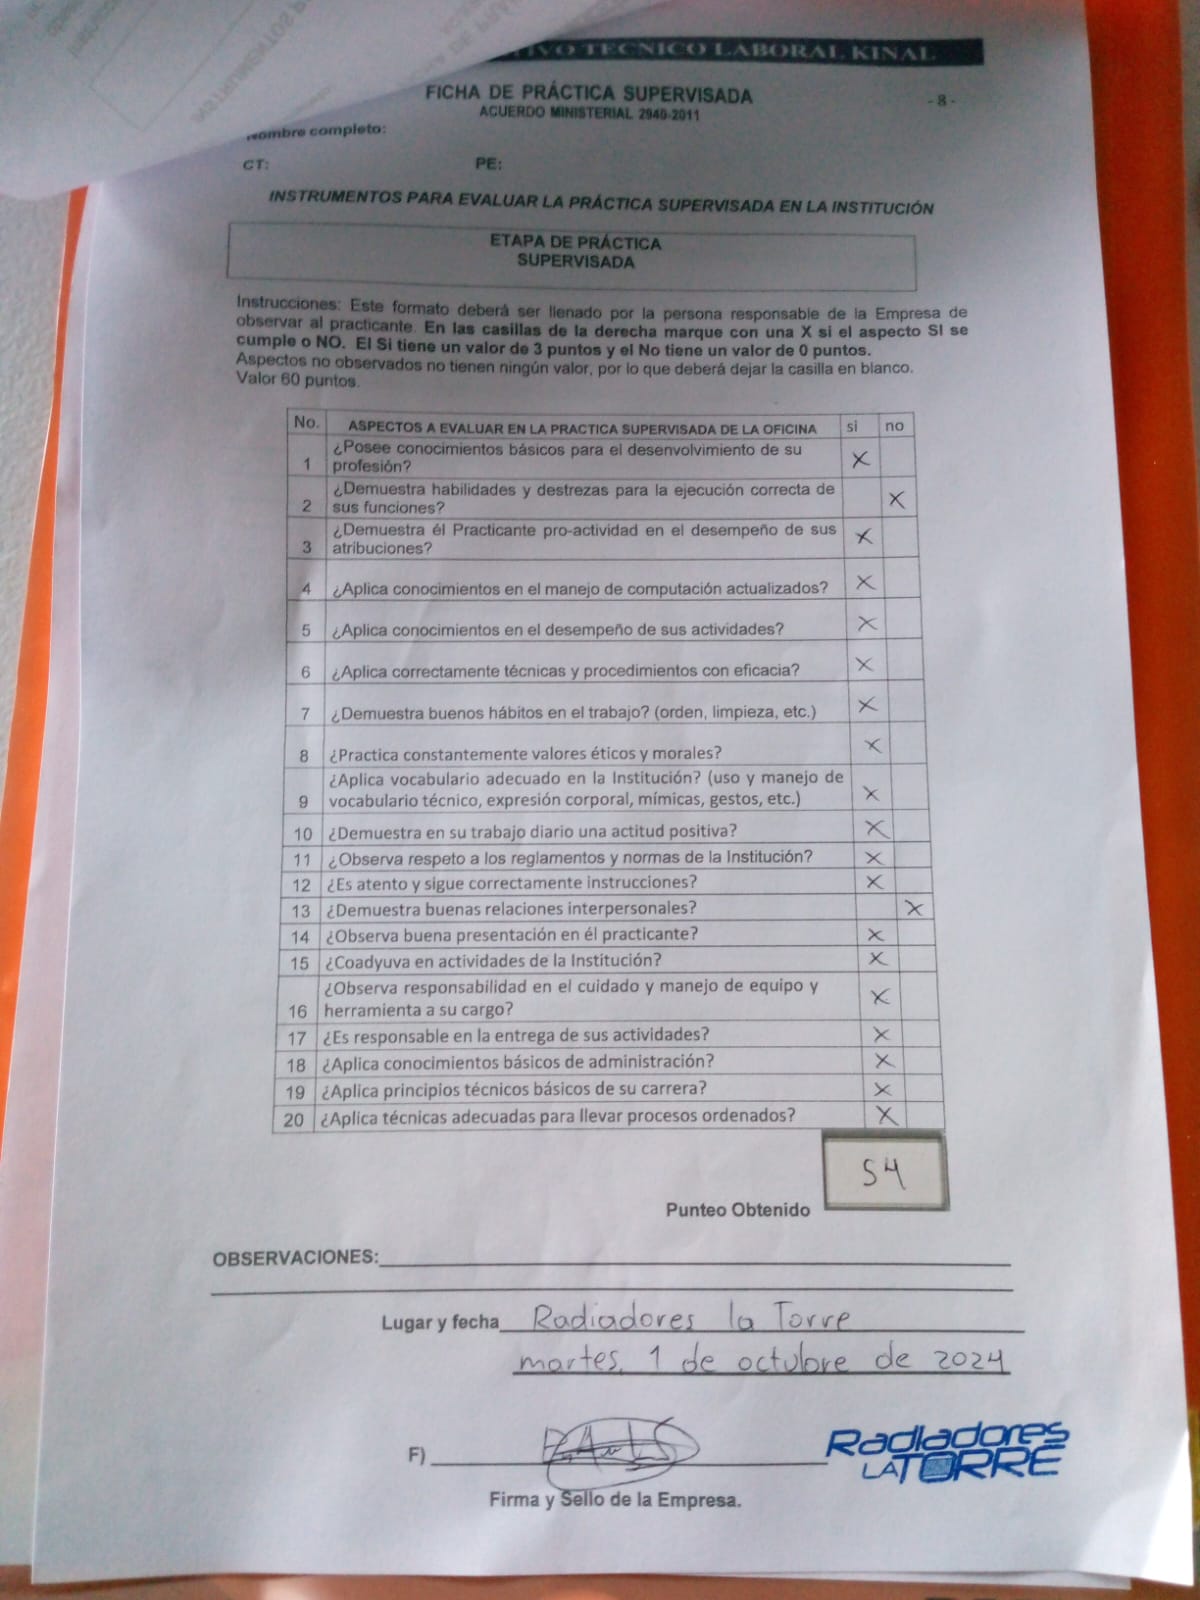 TECNICO LABORAL KINAL
FICHA DE PRÁCTICA SUPERVISADA
- 8 -
ACUERDO MINISTERIAL 2940-2011
Nombre completo:
CT: PE:
INSTRUMENTOS PARA EVALUAR LA PRÁCTICA SUPERVISADA EN LA INSTITUCIÓN
ETAPA DE PRÁCTICA
SUPERVISADA
Instrucciones: Este formato deberá ser llenado por la persona responsable de la Empresa de
observar al practicante. En las casillas de la derecha marque con una X si el aspecto SI se
cumple o NO. El Si tiene un valor de 3 puntos y el No tiene un valor de 0 puntos.
Aspectos no observados no tienen ningún valor, por lo que deberá dejar la casilla en blanco.
Valor 60 puntos.
No. ASPECTOS A EVALUAR EN LA PRACTICA SUPERVISADA DE LA OFICINA si no
¿Posee conocimientos básicos para el desenvolvimiento de su
1 profesión? X
¿Demuestra habilidades y destrezas para la ejecución correcta de
2 sus funciones? X
¿Demuestra él Practicante pro-actividad en el desempeño de sus
3 atribuciones? X
4 ¿Aplica conocimientos en el manejo de computación actualizados? X
5 ¿Aplica conocimientos en el desempeño de sus actividades? X
6 ¿Aplica correctamente técnicas y procedimientos con eficacia? X
7 ¿Demuestra buenos hábitos en el trabajo? (orden, limpieza, etc.) X
8 ¿Practica constantemente valores éticos y morales? X
¿Aplica vocabulario adecuado en la Institución? (uso y manejo de
9 vocabulario técnico, expresión corporal, mímicas, gestos, etc.) X
10 ¿Demuestra en su trabajo diario una actitud positiva? X
11 ¿Observa respeto a los reglamentos y normas de la Institución? X
12 ¿Es atento y sigue correctamente instrucciones? X
13 ¿Demuestra buenas relaciones interpersonales? X
14 ¿Observa buena presentación en él practicante? X
15 ¿Coadyuva en actividades de la Institución? X
¿Observa responsabilidad en el cuidado y manejo de equipo y
16 herramienta a su cargo? X
17 ¿Es responsable en la entrega de sus actividades? X
18 ¿Aplica conocimientos básicos de administración? X
19 ¿Aplica principios técnicos básicos de su carrera? X
20 ¿Aplica técnicas adecuadas para llevar procesos ordenados? X
54
Punteo Obtenido
OBSERVACIONES:
Lugar y fecha Radiadores la Torre
martes, 1 de octubre de 2024
F)
Radiadores
LA TORRE
Firma y Sello de la Empresa.